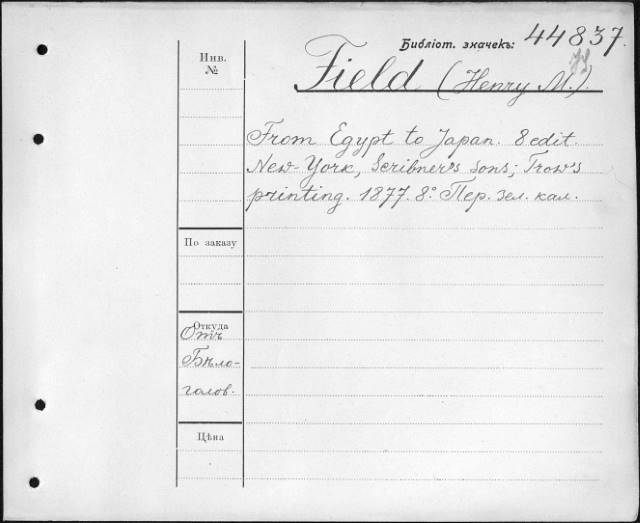 Библіот. значекъ: 44837.
Инв.
№
Field (Henry M.).
From Egypt to Japan. 8 edit.
New-York, Scribner's Sons; Trow's
printing. 1877. 8.° Пер. зел. кал.
По заказу
Откуда
Отъ
Бѣло-
голов.
Цѣна